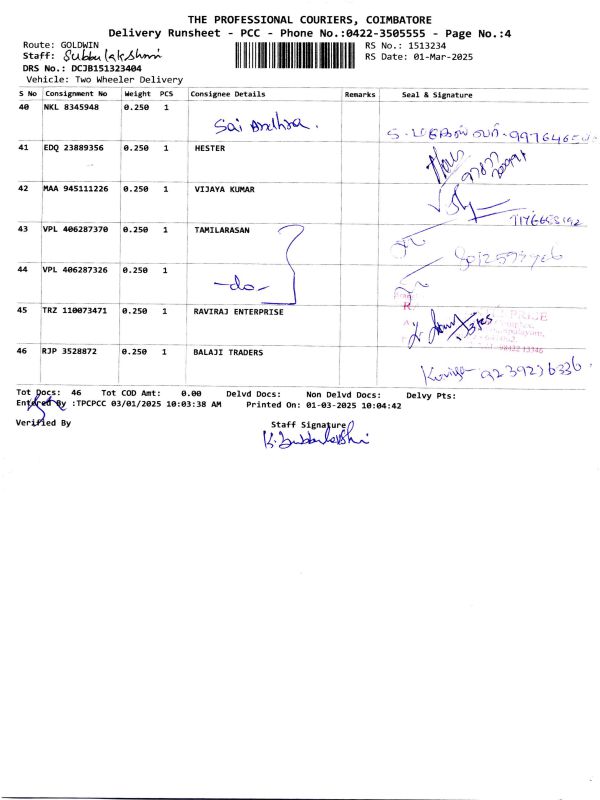 THE PROFESSIONAL COURIERS, COIMBATORE
Delivery Runsheet - PCC - Phone No.:0422-3505555 - Page No.:4
Route: GOLDWIN
RS No.: 1513234
Staff: Subbulakshmi
RS Date: 01-Mar-2025
DRS No.: DCJB151323404
Vehicle: Two Wheeler Delivery
S No Consignment No Weight PCS Consignee Details Remarks Seal & Signature
40 NKL 8345948 0.250 1 Sai Andhra.
41 EDQ 23889356 0.250 1 HESTER
42 MAA 945111226 0.250 1 VIJAYA KUMAR
43 VPL 406287370 0.250 1 TAMILARASAN
44 VPL 406287326 0.250 1 -do-
45 TRZ 110073471 0.250 1 RAVIRAJ ENTERPRISE
46 RJP 3528872 0.250 1 BALAJI TRADERS 9239276336
Tot Docs: 46 Tot COD Amt: 0.00 Delvd Docs: Non Delvd Docs: Delvy Pts:
Entered By :TPCPCC 03/01/2025 10:03:38 AM Printed On: 01-03-2025 10:04:42
Verified By Staff Signature
K. Subbulakshmi